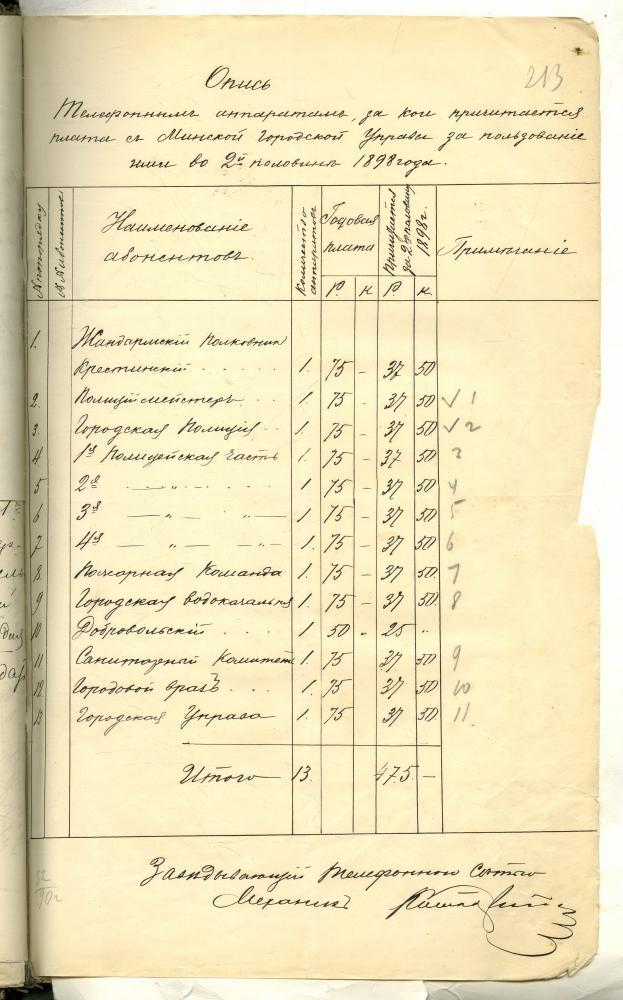 213
Опись
Телефоннымъ аппаратамъ, за кои причитается
плата съ Минской Городской Управы за пользованіе
ими во 2й половинѣ 1898 года.
№ по порядку
Наименованіе абонентовъ.
Количество аппаратовъ
Годовая плата
Причитается за 2ю половину 1898 г.
Примѣчаніе
Р. К Р. К.
1. Жандармскій Полковникъ
Крестинскій . . . . . 1. 75 – 37 50
2. Полиціймейстеръ . . 1. 75 – 37 50 √ 1
3. Городская Полиція . . 1. 75 – 37 50 √ 2
4 1я Полицейская часть 1. 75 – 37 50 3
5 2я — „ — 1. 75 – 37 50 4
6 3я — „ — „ — 1. 75 – 37 50 5
7 4я — „ — „ — 1. 75 – 37 50 6
8. Пожарная Команда 1. 75 – 37 50. 7
9 Городская водокачальня 1. 75 – 37 50. 8
10 Добровольскій . . . . 1 50 – 25 „
11 Санитарный Комитетъ 1. 75 37 50 9
12. Городовой врачъ . . . 1. 75 37 50 10
13 Городская Управа 1. 75 37 50. 11
Итого 13. 475. –
Завѣдывающій телефонною сѣтью
Механикъ